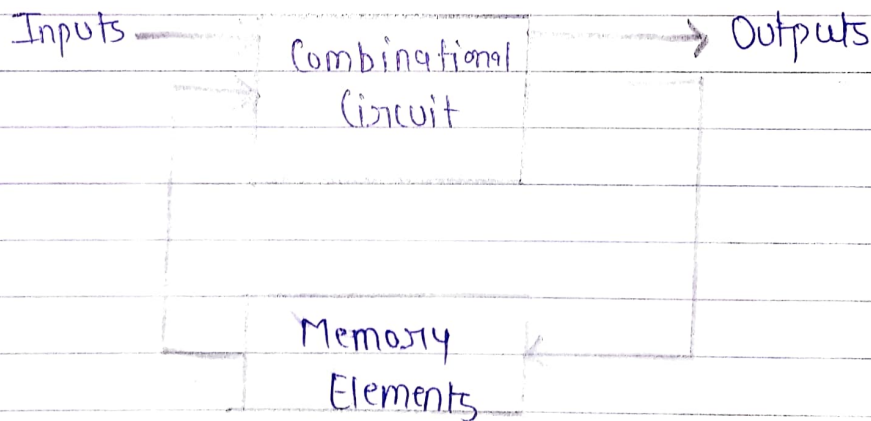 Inputs
Combinational
Circuit
Outputs
Memory
Elements